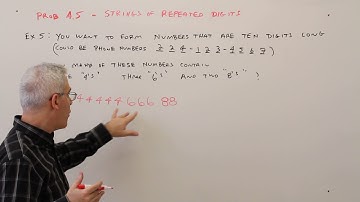 PROB 4.5 - STRINGS OF REPEATED DIGITS
EX 5: YOU WANT TO FORM NUMBERS THAT ARE TEN DIGITS LONG
(COULD BE PHONE NUMBERS 2 2 4 - 1 2 3 - 4 5 6 7)
MANY OF THESE NUMBERS CONTAIN
"4's" THREE "6's" AND TWO "8's" ?
4 4 4 4 4 6 6 6 8 8